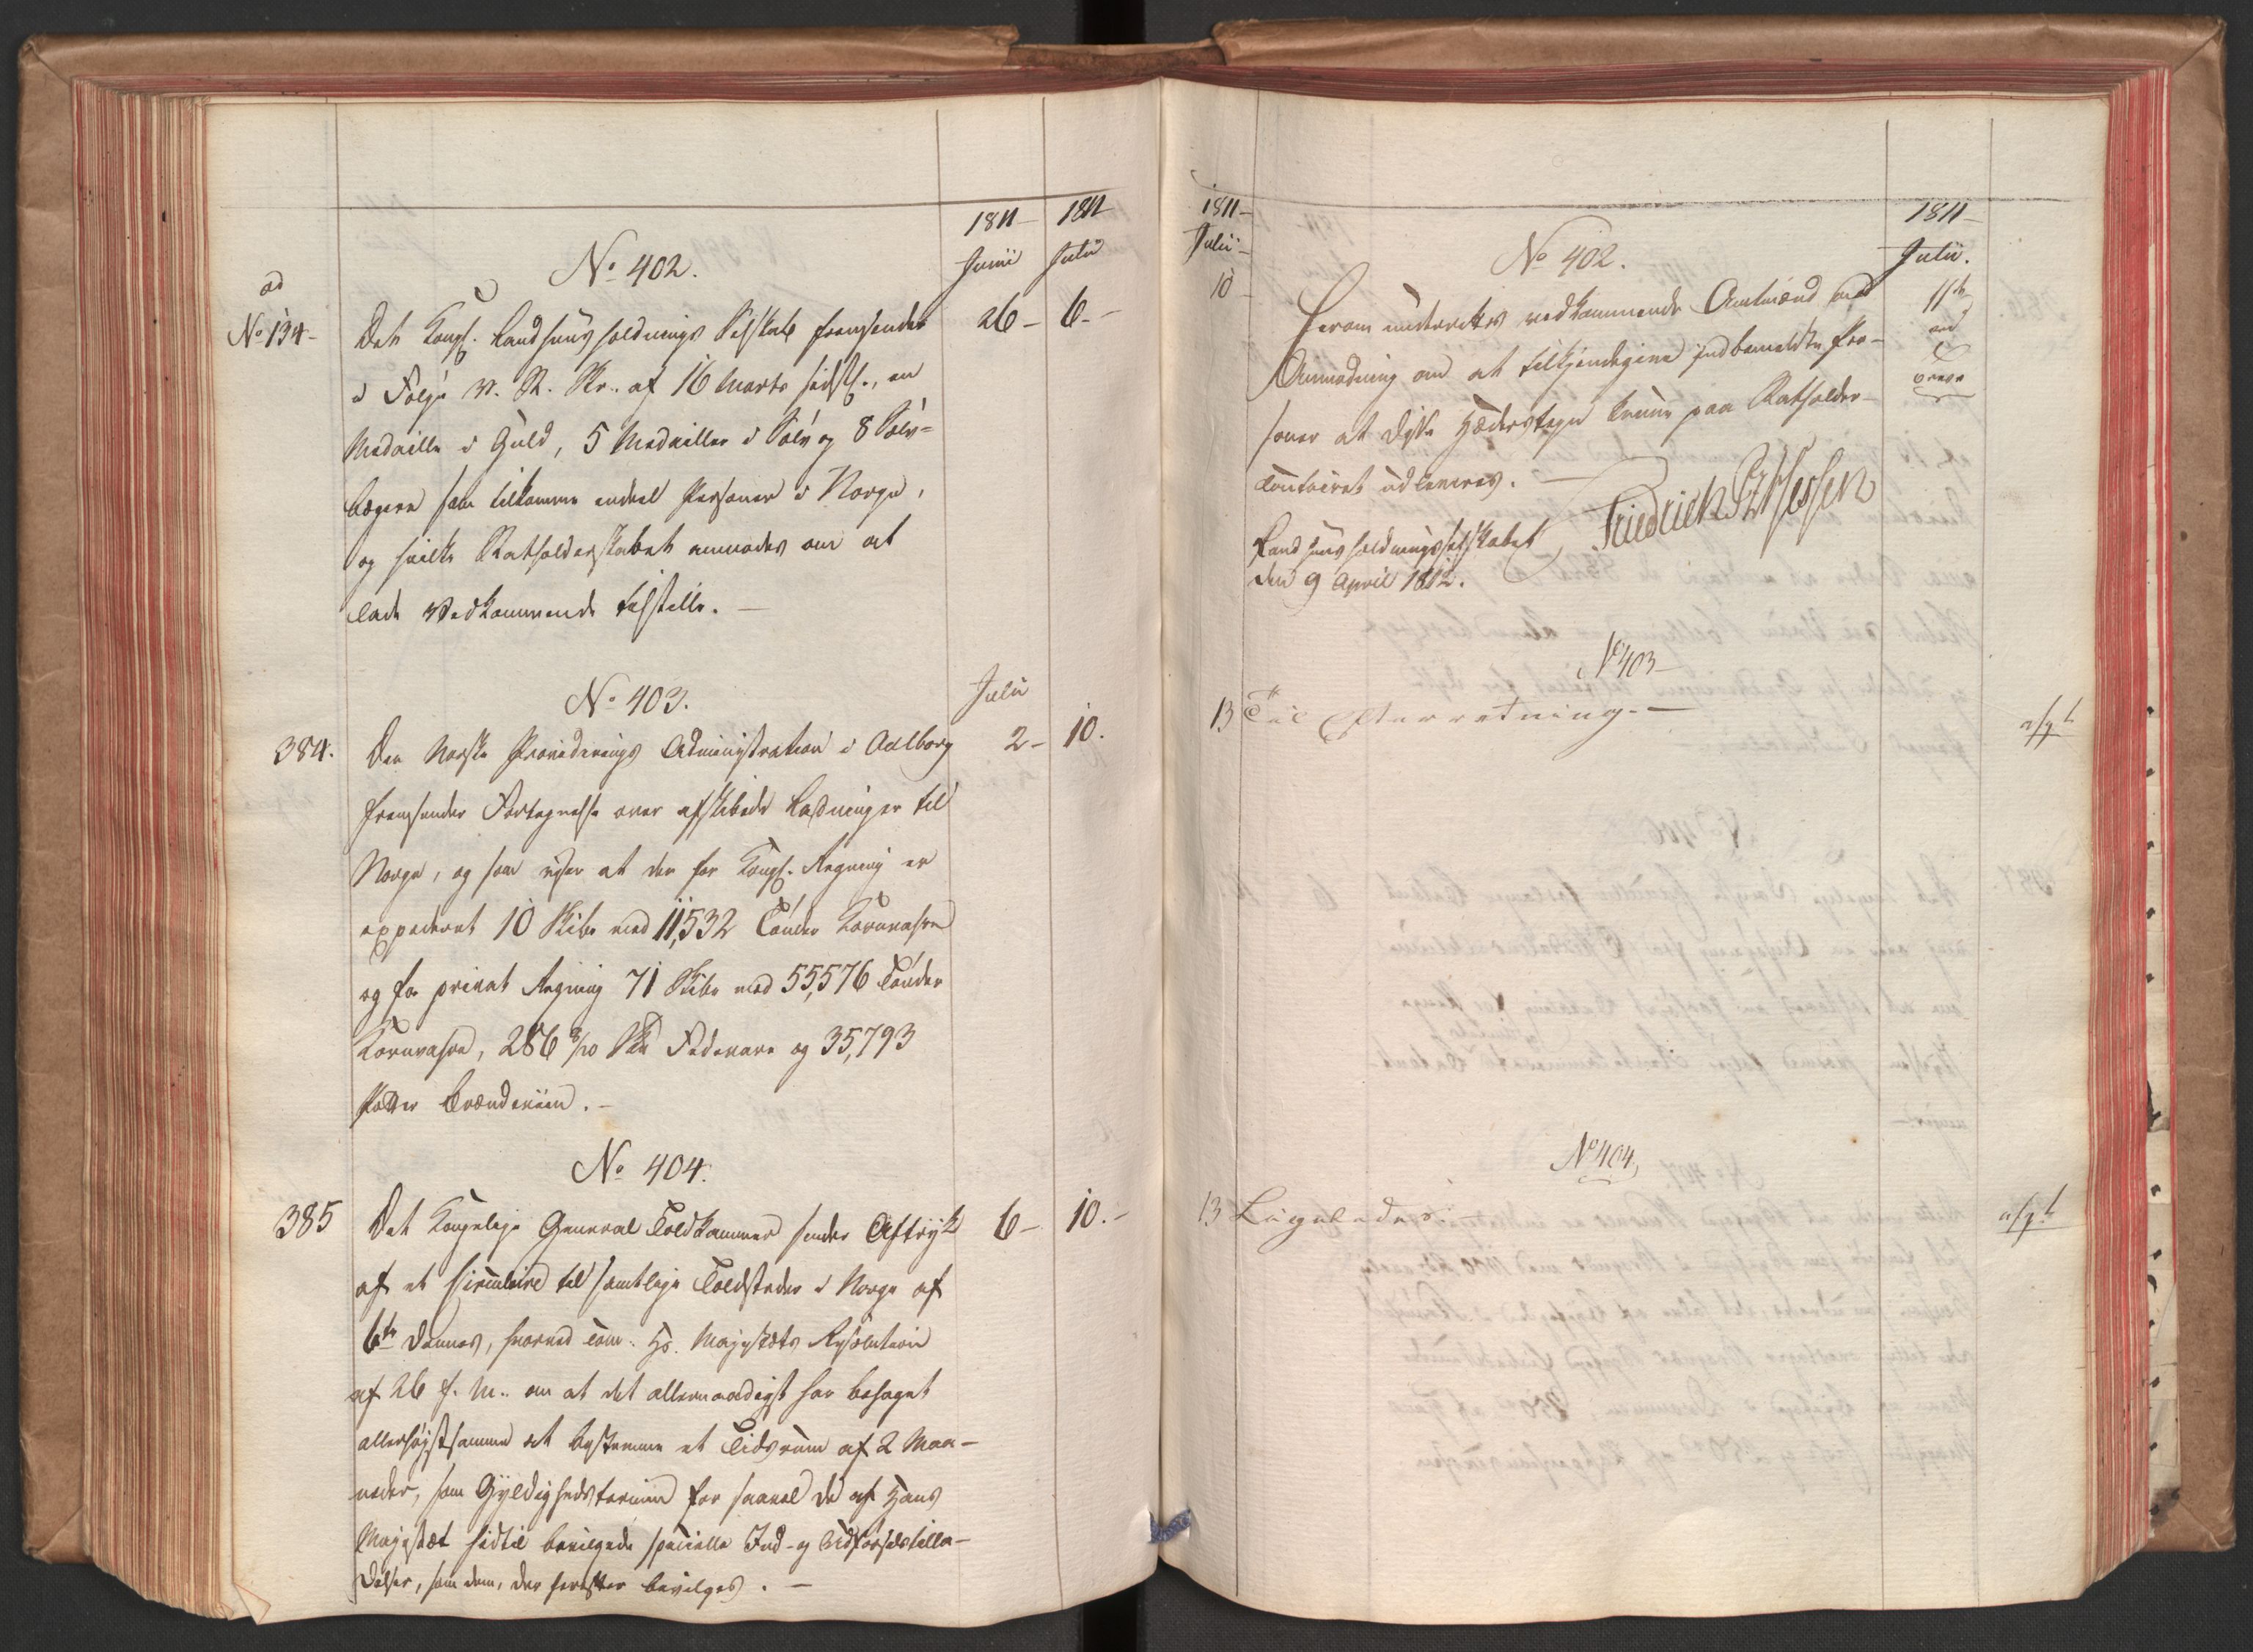 1811 1811
Junii Julii
No 402.
ad
No 134 Det Kongl. Landhuusholdnings Selskab fremsender 26 6
i Følge N. R. Skr. af 16 Marts sidstl., en
Medaille i Guld, 5 Medailler i Sølv og 8 Sølv-
bægere som tilkomme endeel Personer i Norge,
og hvilke Statholderskabet anmodes om at
lade Vedkommende tilstille.
No 403. Julii
384. Den Norske Provideerings Administration i Aalborg 2 10.
fremsender Fortegnelse over afskibede Ladninger til
Norge, og som viser at der for Kongl. Regning er
expederet 10 Skibe med 11,532 Tönder Kornvahre
og for privat Regning 71 Skibe med 55,576 Tönder
Kornvahre, 286 9/20 Sk℔ Fedevare og 35,793
Potter Brændeviin.
No 404.
385 Det Kongelige General Toldkammer sender Aftryk 6 10.
af et Circulaire til samtlige Toldsteder i Norge af
6te dennes, hvorved Com. Hs. Majestæts Resolution
af 26 f. M. om at det allernaadigst har behaget
allerhøistsamme at bestemme et Tidsrum af 2 Maa-
neder, som Gyldighedstermin for saavel de af Hans
Majestæt hidtil bevilgede specielle Ind- og Udførselstilla-
delser, som dem, der herefter bevilges.
1811 1811
Julii Julii.
No 402.
10 Herom underrettes vedkommende Amtmænd med 11te
Anmodning om at tilkjendegive indbemeldte Per-
soner at disse Hæderstegn kunne paa Statholder-
Contoiret udleveres.
Friedrich Pz Hessen
Landhuusholdningsselskabet
den 9 April 1812.
No 403
13 Til Efterretning. afg.t
No 404,
13 Ligeledes. afg.t